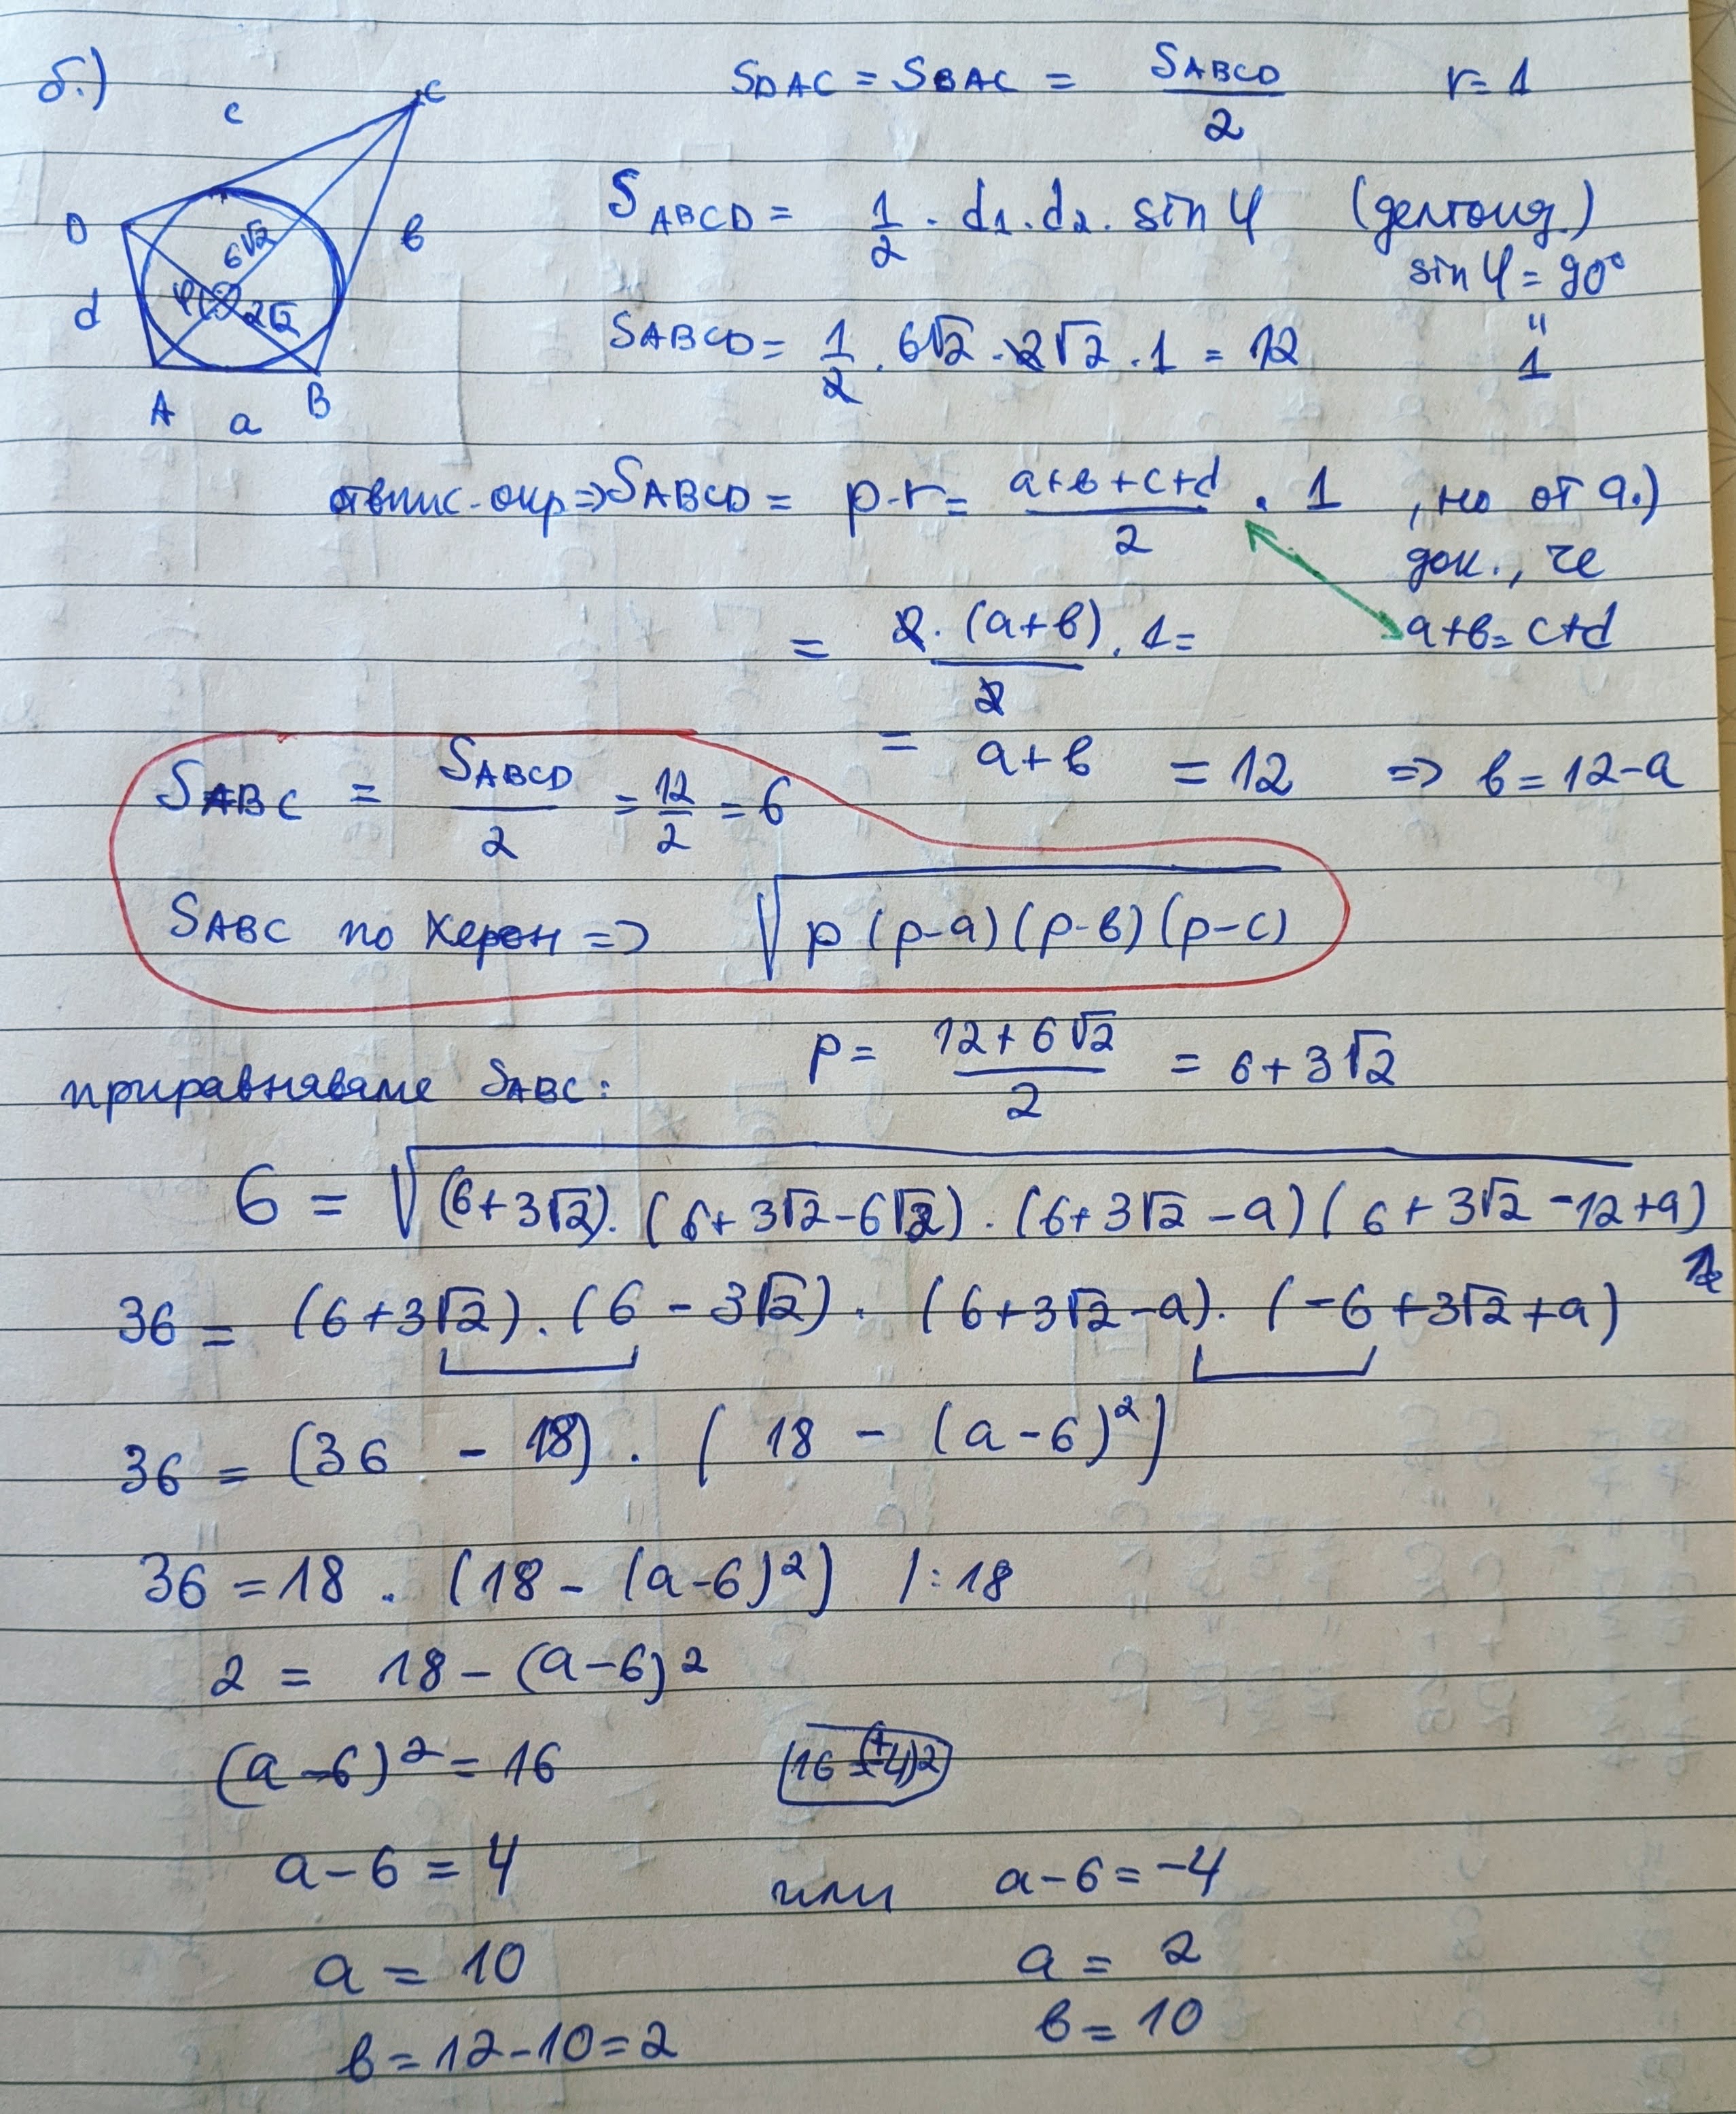 б.)
C
c
D
6√2
в
φ
2√2
d
A
a
B
SDAC = SBAC = SABCD / 2    r = 1
SABCD = 1/2 . d1 . d2 . sin φ (делтоид.)
sin φ = 90°
"
1
SABCD = 1/2 . 6√2 . 2√2 . 1 = 12
впис. окр => SABCD = p.r = (a+в+c+d)/2 . 1 , но от а.)
док., че
a+в = c+d
= 2.(a+в)/2 . 1 =
= a+в = 12 => в = 12-a
SABC = SABCD/2 = 12/2 = 6
SABC по Херон => √p(p-a)(p-в)(p-c)
p = (12+6√2)/2 = 6+3√2
приравняваме SABC:
6 = √(6+3√2).(6+3√2-6√2).(6+3√2-a)(6+3√2-12+a)
36 = (6+3√2).(6-3√2).(6+3√2-a).(-6+3√2+a)
36 = (36 - 18).(18 - (a-6)²)
36 = 18 . (18 - (a-6)²) /:18
2 = 18 - (a-6)²
(a-6)² = 16    16 = (±4)²
a-6 = 4    или    a-6 = -4
a = 10    a = 2
в = 12-10 = 2    в = 10